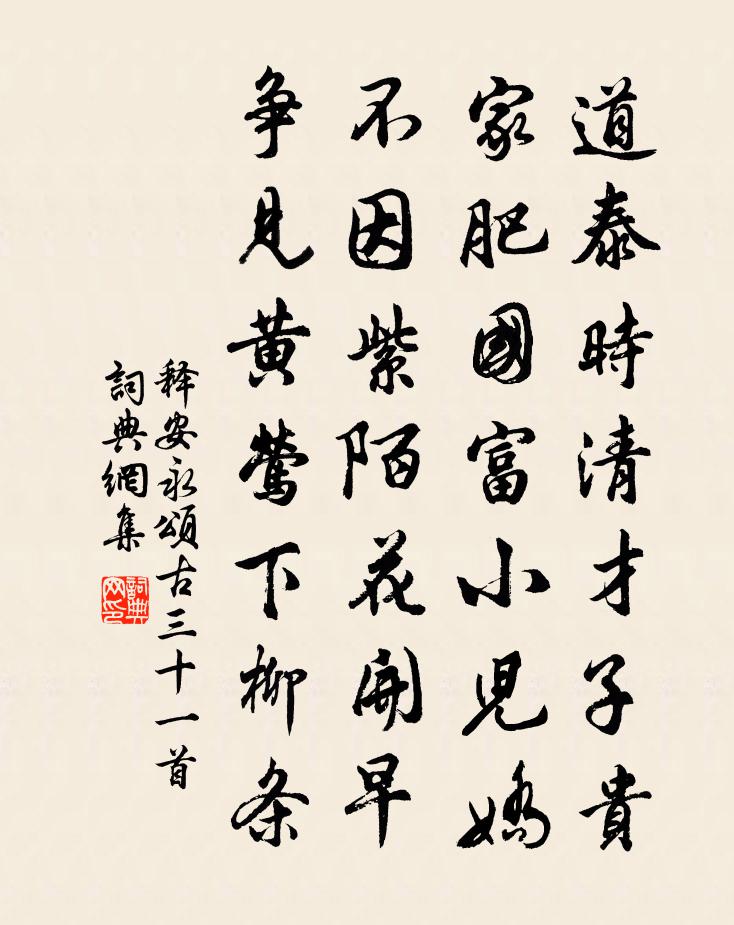 道泰時清才子貴
家肥國富小児嬌
不因紫陌花開早
争見黄鶯下柳条
释安永頌古三十一首
詞典網集
詞典网印